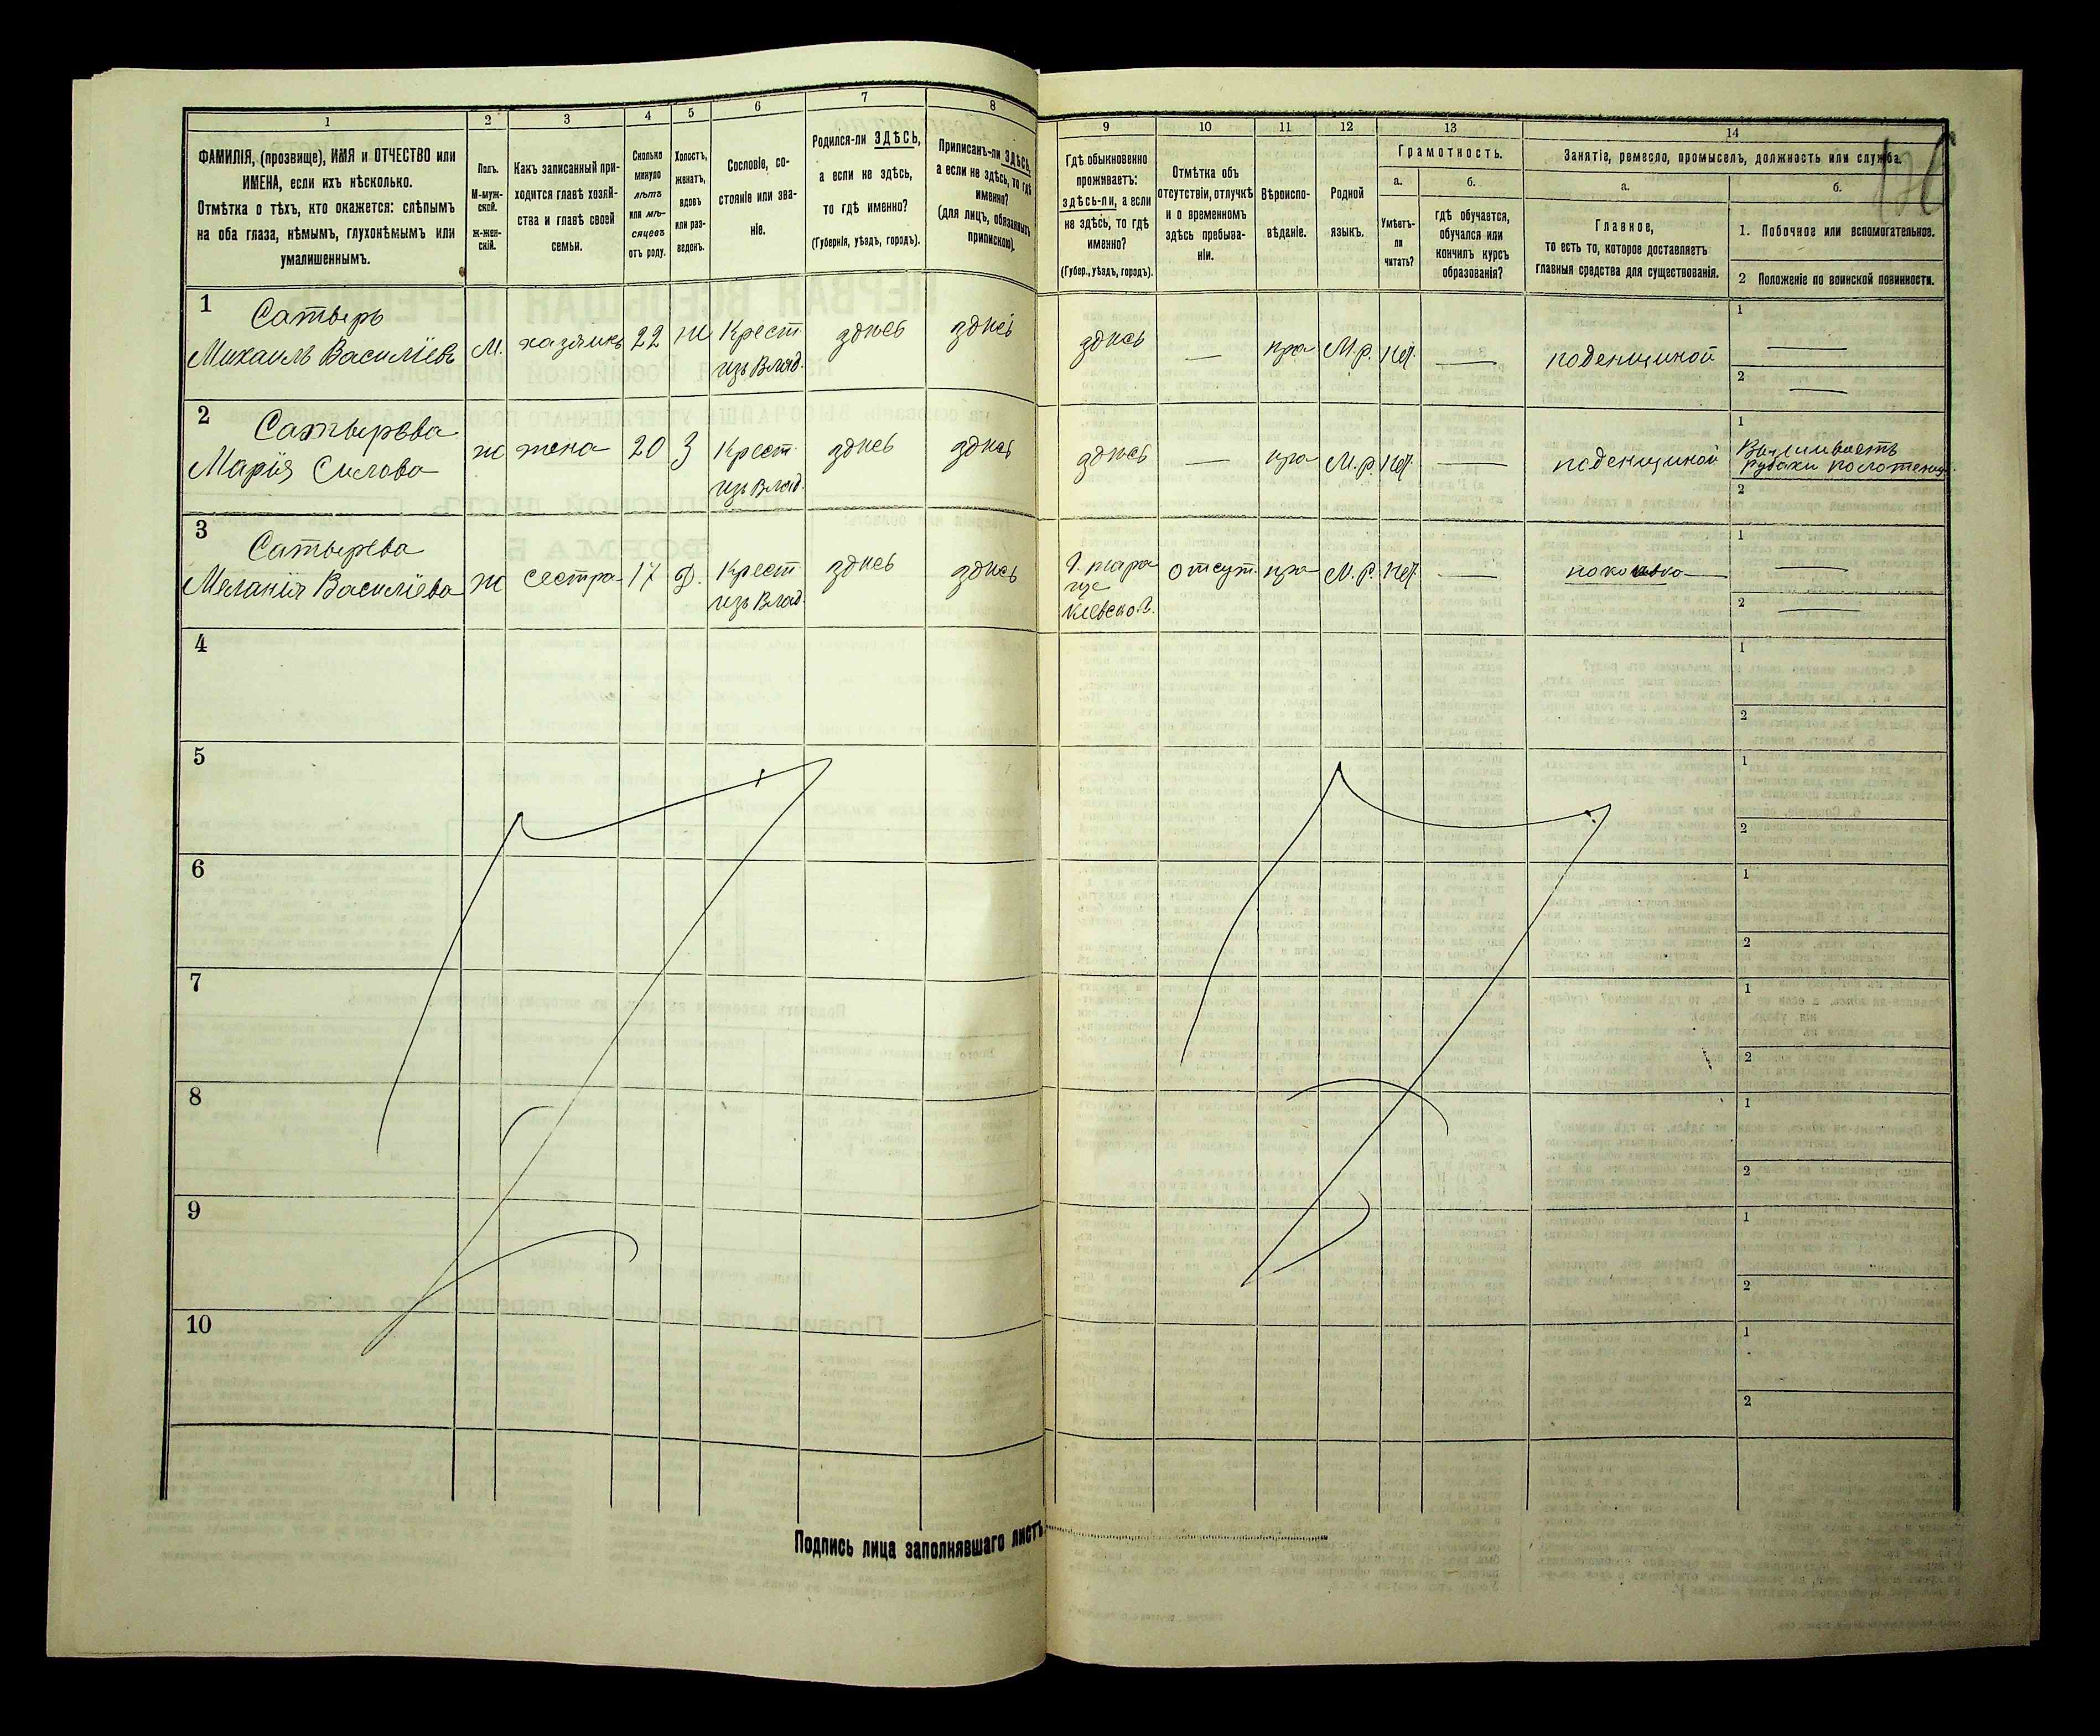 1
2
3
4
5
6
7
8
ФАМИЛІЯ, (прозвище), ИМЯ и ОТЧЕСТВО или
ИМЕНА, если ихъ нѣсколько.
Отмѣтка о тѣхъ, кто окажется: слѣпымъ
на оба глаза, нѣмымъ, глухонѣмымъ или
умалишеннымъ.
Полъ.
М-муж-
ской.
ж-жен-
скій.
Какъ записанный при-
ходится главѣ хозяй-
ства и главѣ своей
семьи.
Сколько
минуло
лѣтъ
или мѣ-
сяцевъ
отъ роду.
Холостъ,
женатъ,
вдовъ
или раз-
веденъ.
Сословіе, со-
стояніе или зва-
ніе.
Родился-ли ЗДѢСЬ,
а если не здѣсь,
то гдѣ именно?
(Губернія, уѣздъ, городъ).
Приписанъ-ли ЗДѢСЬ,
а если не здѣсь, то гдѣ
именно?
(для лицъ, обязанныхъ
припискою).
1
Сатырь
Михаилъ Василіевъ
М.
хазяинъ
22
ж
Крест.
изъ Влад.
здѣсь
здѣсь
2
Сатырева
Марія Силова
ж
жена
20
З
Крест.
изъ Влад.
здѣсь
здѣсь
3
Сатырева
Меланія Василіева
ж
сестра
17
Д.
Крест.
изъ Влад.
здѣсь
здѣсь
4
5
6
7
8
9
10
Подпись лица заполнявшаго листъ
9
10
11
12
13
14
Гдѣ обыкновенно
проживаетъ:
здѣсь-ли, а если
не здѣсь, то гдѣ
именно?
(Губер., уѣздъ, городъ).
Отмѣтка объ
отсутствіи, отлучкѣ
и о временномъ
здѣсь пребыва-
ніи.
Вѣроиспо-
вѣданіе.
Родной
языкъ.
Грамотность.
а.
Умѣетъ-
ли
читать?
б.
гдѣ обучается,
обучался или
кончилъ курсъ
образованія?
Занятіе, ремесло, промыселъ, должность или служба.
а.
Главное,
то есть то, которое доставляетъ
главныя средства для существованія.
б.
1. Побочное или вспомогательное.
2 Положеніе по воинской повинности.
здѣсь
—
пра
М.р.
нѣт.
—
поденщиной
1
—
2
—
здѣсь
—
пра
М.р
нѣт.
—
поденщиной
1
Вышиваетъ
2
Г. тара
ще
Кіевско Г.
отсут.
пра
М.р.
нѣт.
—
1
—
2
—
1
2
1
2
1
2
1
2
1
2
1
2
1
2